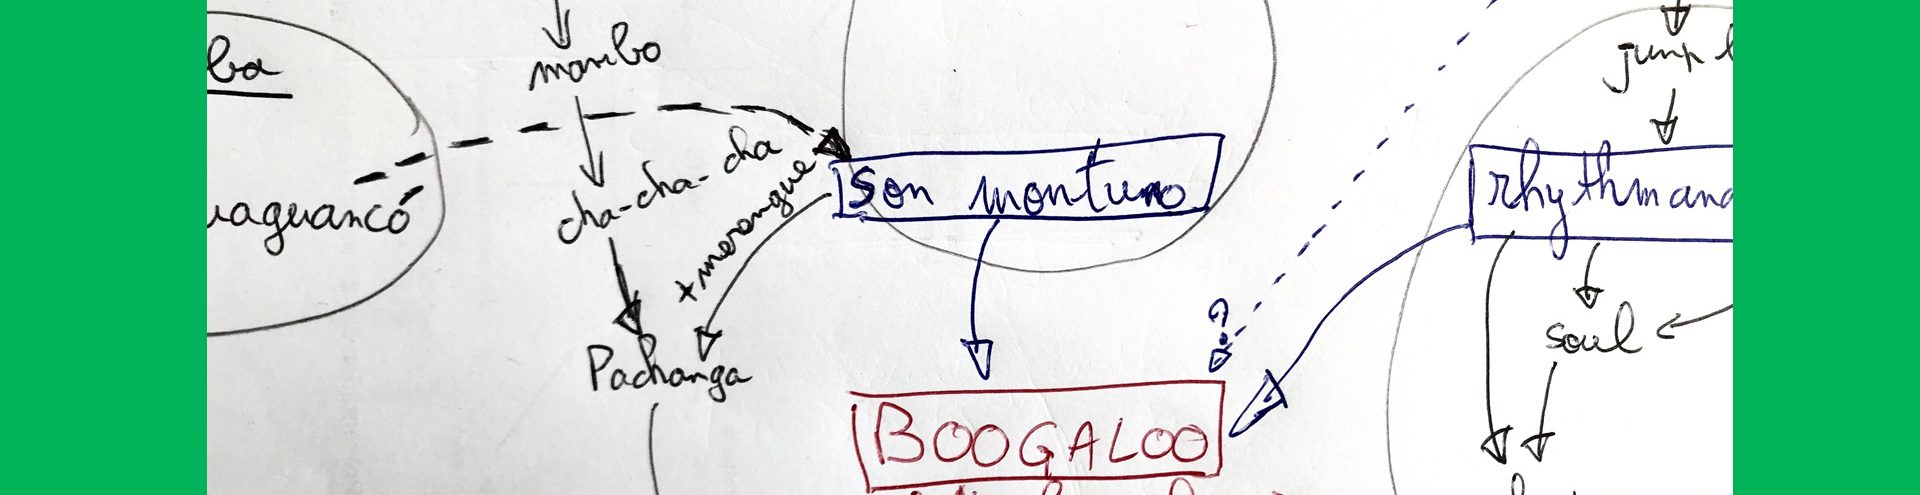 mambo
cha-cha-cha
+ merengue
Pachanga
son montuno
?
BOOGALOO
jump
rhythm and
soul